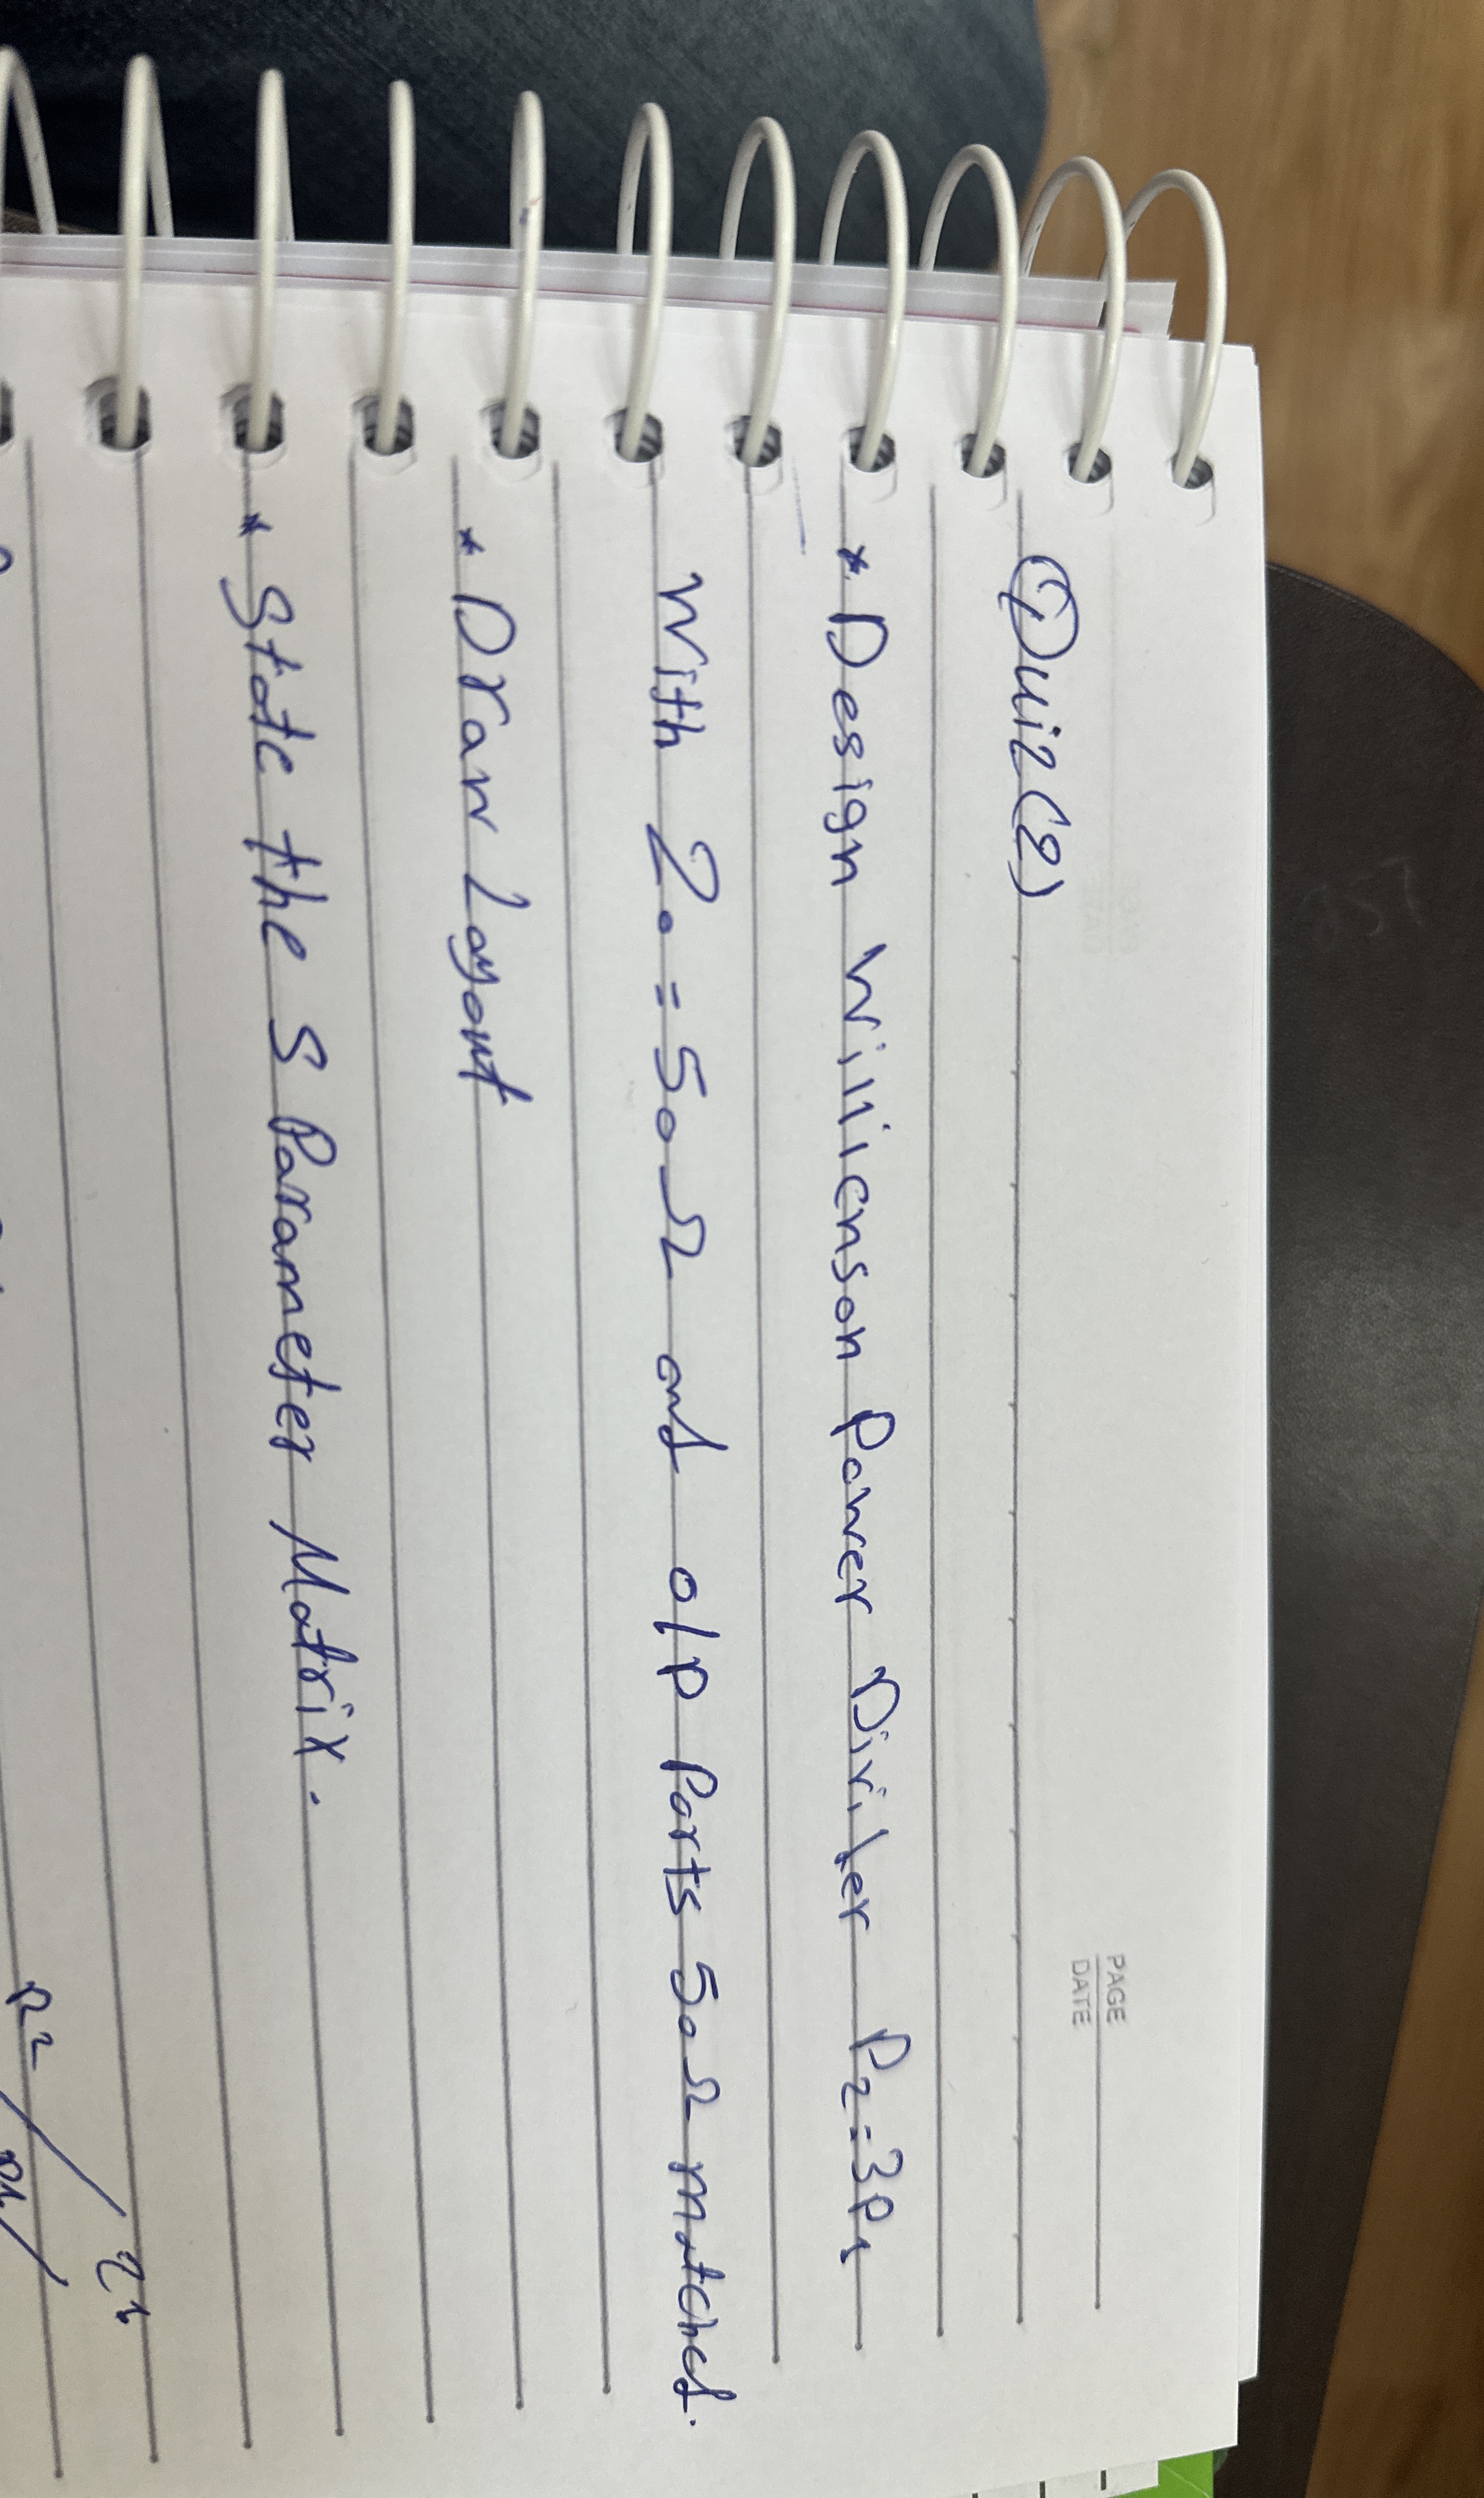 PAGE
DATE
Quiz(2)
* Design Willicnson Power Divider P2=3P1
with Zo=50Ω and o/p Ports 50Ω matched.
* Draw Layout
* State the S Parameter Matrix.